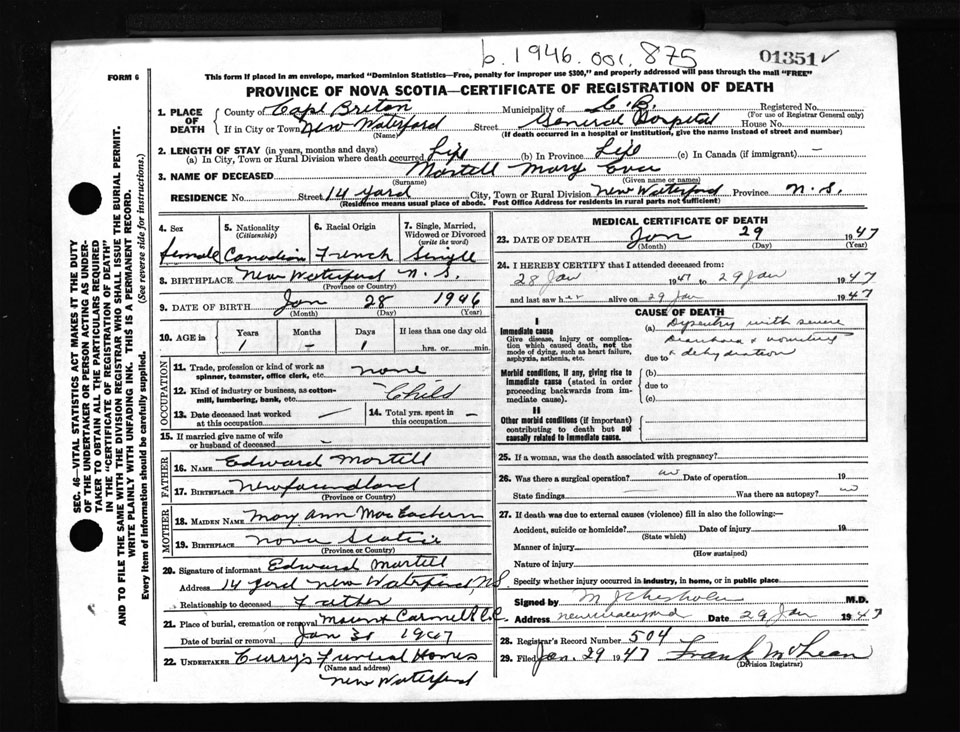 b. 1946. 001. 875
01351✓
FORM 6
This form if placed in an envelope, marked "Dominion Statistics—Free, penalty for improper use $300," and properly addressed will pass through the mail "FREE"
PROVINCE OF NOVA SCOTIA—CERTIFICATE OF REGISTRATION OF DEATH
SEC. 46—VITAL STATISTICS ACT MAKES IT THE DUTY
OF THE UNDERTAKER OR PERSON ACTING AS UNDER-
TAKER TO OBTAIN ALL THE PARTICULARS REQUIRED
IN THE "CERTIFICATE OF REGISTRATION OF DEATH"
AND TO FILE THE SAME WITH THE DIVISION REGISTRAR WHO SHALL ISSUE THE BURIAL PERMIT.
WRITE PLAINLY WITH UNFADING INK. THIS IS A PERMANENT RECORD.
Every item of information should be carefully supplied. (See reverse side for instructions.)
1. PLACE OF DEATH
County of Cape Breton Municipality of C. B. Registered No.
(For use of Registrar General only)
If in City or Town New Waterford Street General Hospital House No.
(Name) (If death occurred in a hospital or institution, give the name instead of street and number)
2. LENGTH OF STAY (in years, months and days)
(a) In City, Town or Rural Division where death occurred Life (b) In Province Life (c) In Canada (if immigrant) —
3. NAME OF DECEASED Martell Mary Eva
(Surname) (Given name or names)
RESIDENCE No. Street 14 Yard City, Town or Rural Division New Waterford Province N.S.
(Residence means usual place of abode. Post Office Address for residents in rural parts not sufficient)
4. Sex female
5. Nationality (Citizenship) Canadian
6. Racial Origin French
7. Single, Married, Widowed or Divorced (write the word) Single
8. BIRTHPLACE New Waterford N.S.
(Province or Country)
9. DATE OF BIRTH Jan 28 1946
(Month) (Day) (Year)
10. AGE in Years Months Days If less than one day old
1 — 1 hrs. or min.
OCCUPATION
11. Trade, profession or kind of work as spinner, teamster, office clerk, etc. none
12. Kind of industry or business, as cotton-mill, lumbering, bank, etc. Child
13. Date deceased last worked at this occupation —
14. Total yrs. spent in this occupation —
15. If married give name of wife or husband of deceased —
FATHER
16. NAME Edward Martell
17. BIRTHPLACE Newfoundland
(Province or Country)
MOTHER
18. MAIDEN NAME Mary Ann MacEachern
19. BIRTHPLACE Nova Scotia
(Province or Country)
20. Signature of informant Edward Martell
Address 14 Yard New Waterford, N.S.
Relationship to deceased Father
21. Place of burial, cremation or removal Mount Carmel R.C.
Date of burial or removal Jan 31 1947
22. UNDERTAKER Curry's Funeral Homes
(Name and address)
New Waterford
MEDICAL CERTIFICATE OF DEATH
23. DATE OF DEATH Jan 29 1947
(Month) (Day) (Year)
24. I HEREBY CERTIFY that I attended deceased from:
28 Jan 1947 to 29 Jan 1947
and last saw her alive on 29 Jan 1947
CAUSE OF DEATH
I
Immediate cause
Give disease, injury or complication which caused death, not the mode of dying, such as heart failure, asphyxia, asthenia, etc.
(a) Dysentry with severe
Diarrhoea & vomiting
due to & dehydration
Morbid conditions, if any, giving rise to immediate cause (stated in order proceeding backwards from immediate cause).
(b)
due to
(c)
II
Other morbid conditions (if important) contributing to death but not causally related to immediate cause.
25. If a woman, was the death associated with pregnancy?
26. Was there a surgical operation? no Date of operation 19
State findings — Was there an autopsy? no
27. If death was due to external causes (violence) fill in also the following:—
Accident, suicide or homicide? Date of injury 19
(State which)
Manner of injury
(How sustained)
Nature of injury
Specify whether injury occurred in industry, in home, or in public place
Signed by M J Chisholm M.D.
Address New Waterford Date 29 Jan 1947
28. Registrar's Record Number 504
29. Filed Jan. 29 1947 Frank McLean
(Division Registrar)